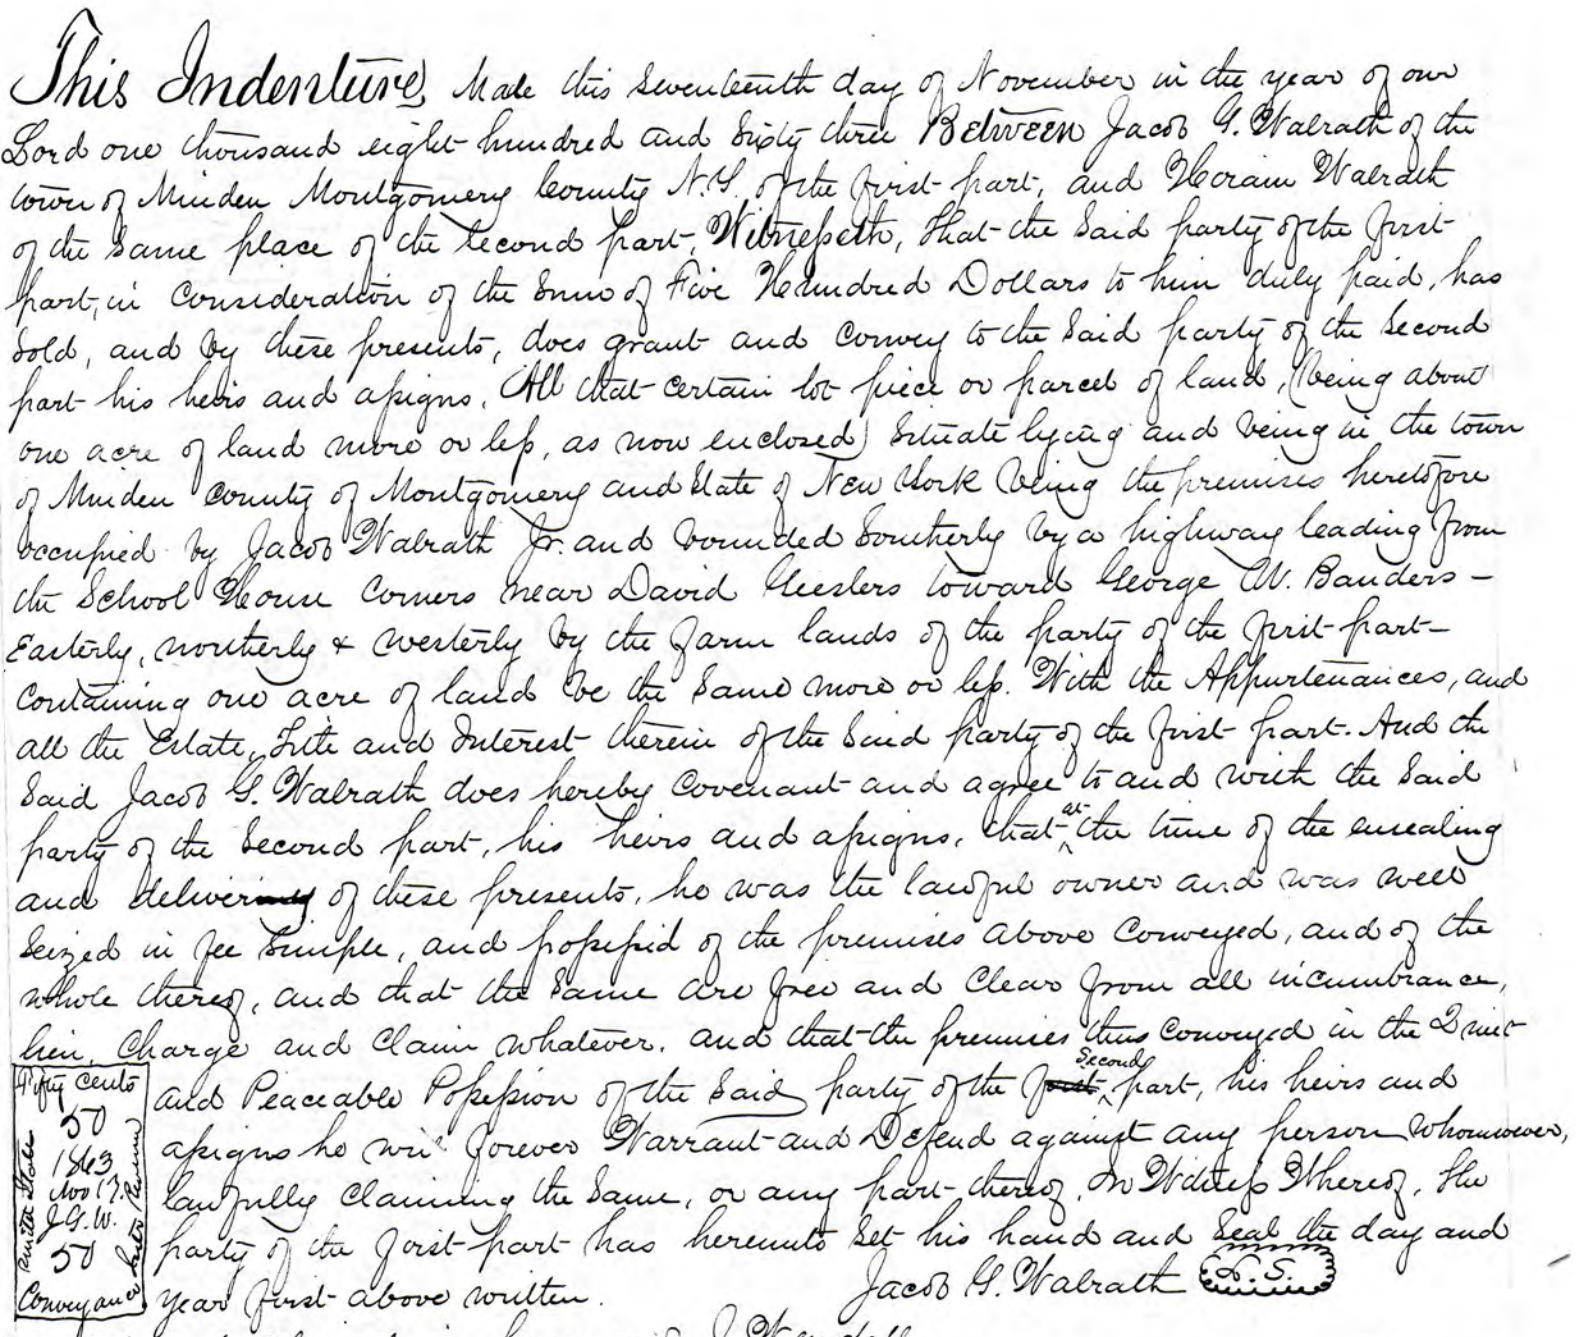 This Indenture, Made this seventeenth day of November in the year of our
Lord one thousand eight hundred and Sixty three Between Jacob G. Walrath of the
town of Minden Montgomery County N.Y. of the first part, and Hiram Walrath
of the same place of the second part, Witnesseth, That the Said party of the first
part, in Consideration of the Sum of Five Hundred Dollars to him duly paid, has
Sold, and by these presents, does grant and Convey to the Said party of the Second
part his heirs and assigns, All that certain lot piece or parcel of land, (being about
one acre of land more or less, as now enclosed) Situate lying and being in the town
of Minden County of Montgomery and State of New York being the premises heretofore
occupied by Jacob Walrath Jr. and bounded Southerly by a highway leading from
the School House Corners near David Geeslers toward George W. Banders -
Easterly, northerly & westerly by the farm lands of the party of the first part -
Containing one acre of land be the Same more or less. With the Appurtenances, and
all the Estate, Title and Interest therein of the Said party of the first part. And the
Said Jacob G. Walrath does hereby Covenant and agree to and with the Said
party of the Second part, his heirs and assigns, that at the time of the ensealing
and delivering of these presents, he was the lawful owner and was well
Seized in fee Simple, and possessed of the premises above Conveyed, and of the
whole thereof, and that the Same are free and Clear from all incumbrance,
lien, Charge and Claim whatever. and that the premises thus Conveyed in the Quiet
and Peaceable Possession of the Said party of the first Second part, his heirs and
assigns he will forever Warrant and Defend against any person whomsoever,
lawfully Claiming the Same, or any part thereof. In Witness Whereof, The
party of the first part has hereunto Set his hand and Seal the day and
year first above written.
Jacob G. Walrath L.S.
Fifty Cents
50
1863
Nov 17.
J.G.W.
50
Conveyance
United States
Inter Revenue